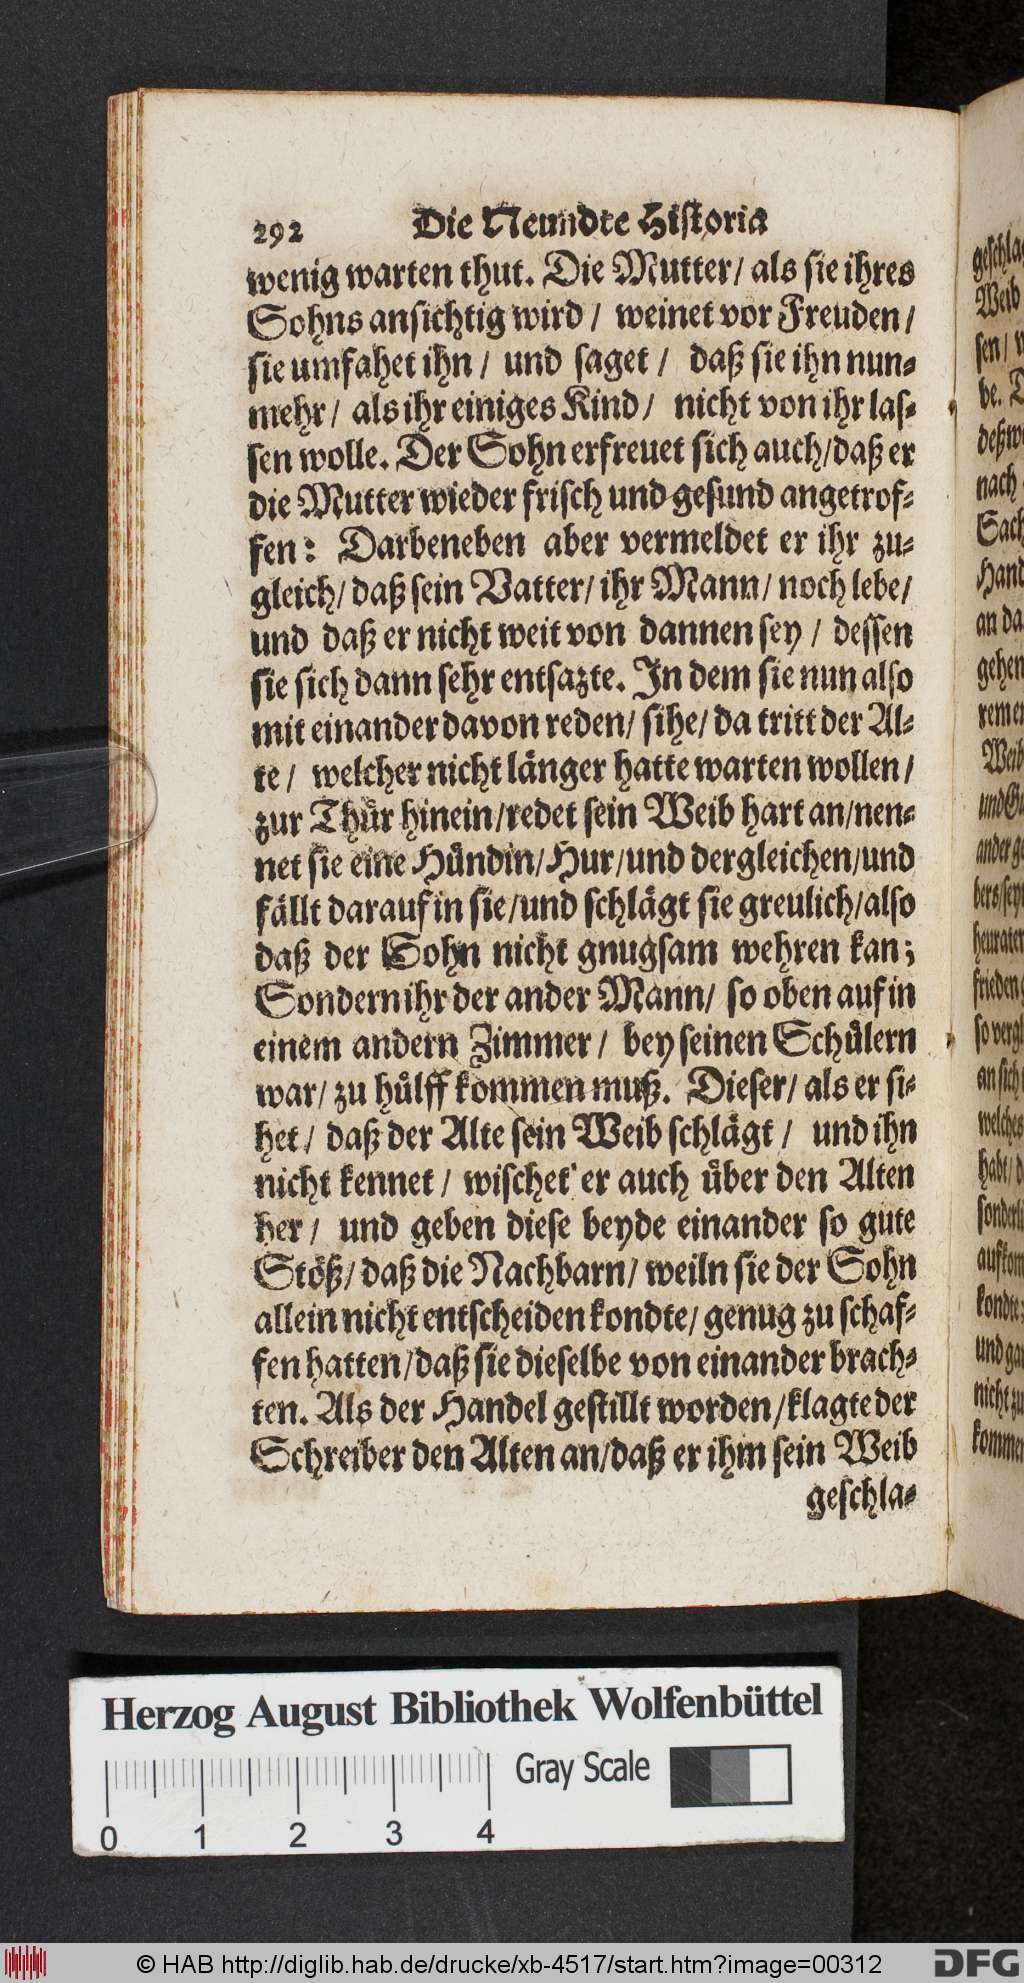 292 Die Neundte Historia
wenig warten thut. Die Mutter/ als sie ihres
Sohns ansichtig wird/ weinet vor Freuden/
sie umfahet ihn/ und saget/ daß sie ihn nun-
mehr/ als ihr einiges Kind/ nicht von ihr las-
sen wolle. Der Sohn erfreuet sich auch/ daß er
die Mutter wieder frisch und gesund angetrof-
fen: Darbeneben aber vermeldet er ihr zu-
gleich/ daß sein Vatter/ ihr Mann/ noch lebe/
und daß er nicht weit von dannen sey/ dessen
sie sich dann sehr entsazte. In dem sie nun also
mit einander davon reden/ sihe/ da tritt der Al-
te/ welcher nicht länger hatte warten wollen/
zur Thür hinein/ redet sein Weib hart an/ nen-
net sie eine Hündin/ Hur/ und dergleichen/ und
fällt darauf in sie/ und schlägt sie greulich/ also
daß der Sohn nicht gnugsam wehren kan;
Sondern ihr der ander Mann/ so oben auf in
einem andern Zimmer/ bey seinen Schülern
war/ zu hülff kommen muß. Dieser/ als er si-
het/ daß der Alte sein Weib schlägt/ und ihn
nicht kennet/ wischet er auch über den Alten
her/ und geben diese beyde einander so gute
Stöß/ daß die Nachbarn/ weiln sie der Sohn
allein nicht entscheiden kondte/ genug zu schaf-
fen hatten/ daß sie dieselbe von einander brach-
ten. Als der Handel gestillt worden/ klagte der
Schreiber den Alten an/ daß er ihm sein Weib
geschla-
geschla
Weib
sen/
be.
deßw
nach
Sach
Hand
an da
gehen
remen
Weib
und
ander ge
bers/ sey
heuraten
frieden
so vergl
an sich
welches
habt/
sonderl
aufkom
kondte
und ga
nicht zu
kommen
Herzog August Bibliothek Wolfenbüttel
Gray Scale
0 1 2 3 4
© HAB http://diglib.hab.de/drucke/xb-4517/start.htm?image=00312
DFG